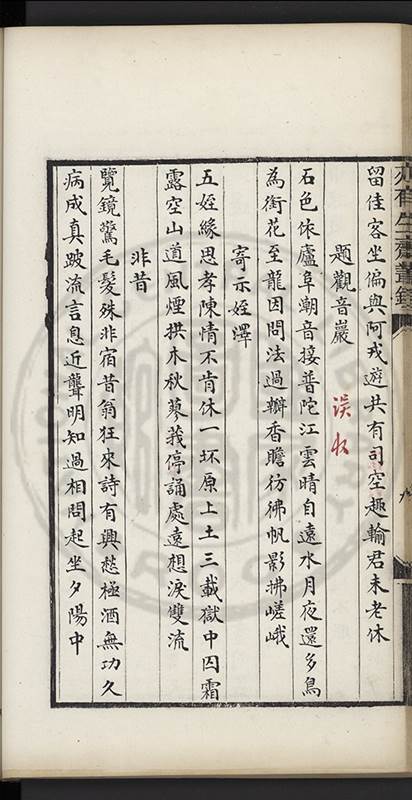 留佳客坐偏與阿戎遊共有司空趣輸君未老休
題觀音巖
誤收
石色依廬阜潮音接普陀江雲晴自遠水月夜還多鳥
為銜花至龍因問法過瓣香瞻彷彿帆影拂嵯峨
寄示姪澤
五姪緣思孝陳情不肯休一抔原上土三載獄中囚霜
露空山道風煙拱木秋蓼莪停誦處遠想淚雙流
非昔
覽鏡驚毛髮殊非宿昔翁狂來詩有興愁極酒無功久
病成真跛流言息近聾明知過相問起坐夕陽中